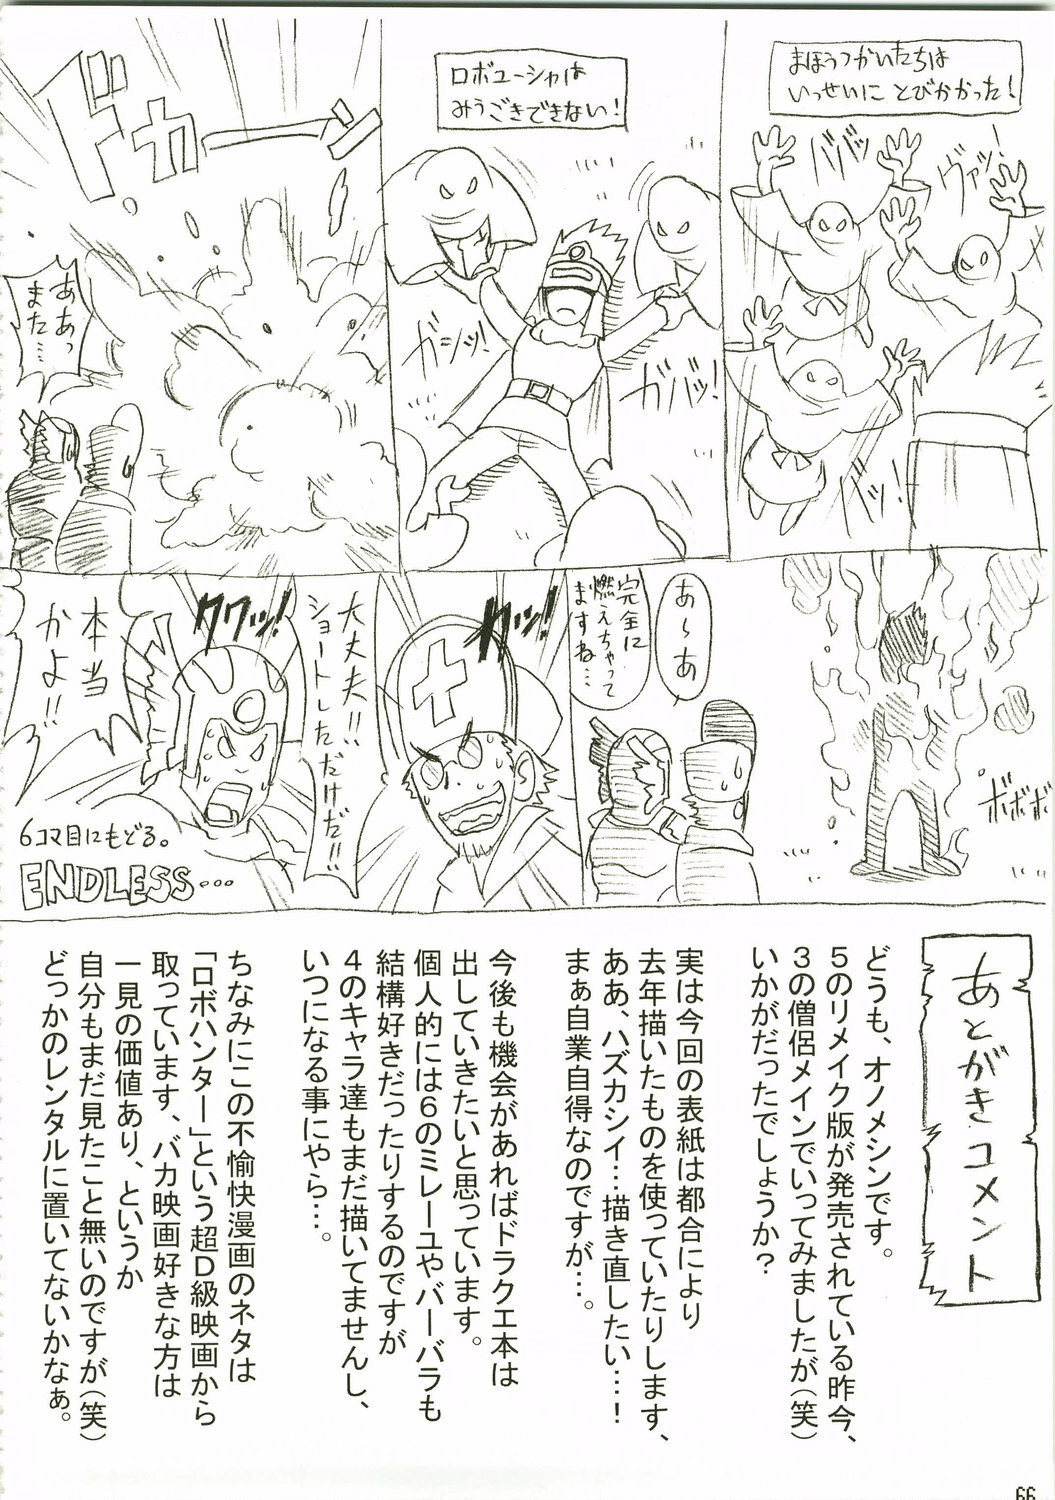 まほうつかいたちは
いっせいに とびかかった!
ババッ
ヴァッ!
バッ!
ロボユーシャは
みうごきできない!
ガシッ!
ガバッ!
ドカーン
ああっ
また…
ボボボ
あ~あ
完全に
燃えちゃって
ますね…
クワッ!
大丈夫!!
ショートしただけだ!!!
クワッ!
本当
かよ!!
6コマ目にもどる。
ENDLESS…
あとがきコメント
どうも、オノメシンです。
5のリメイク版が発売されている昨今、
3の僧侶メインでいってみましたが(笑)
いかがだったでしょうか?
実は今回の表紙は都合により
去年描いたものを使っていたりします、
ああ、ハズカシイ…描き直したい…!
まぁ自業自得なのですが…。
今後も機会があればドラクエ本は
出していきたいと思っています。
個人的には6のミレーユやバーバラも
結構好きだったりするのですが
4のキャラ達もまだ描いてませんし、
いつになる事にやら…。
ちなみにこの不愉快漫画のネタは
「ロボハンター」という超D級映画から
取っています、バカ映画好きな方は
一見の価値あり、というか
自分もまだ見たこと無いのですが(笑)
どっかのレンタルに置いてないかなぁ。
66